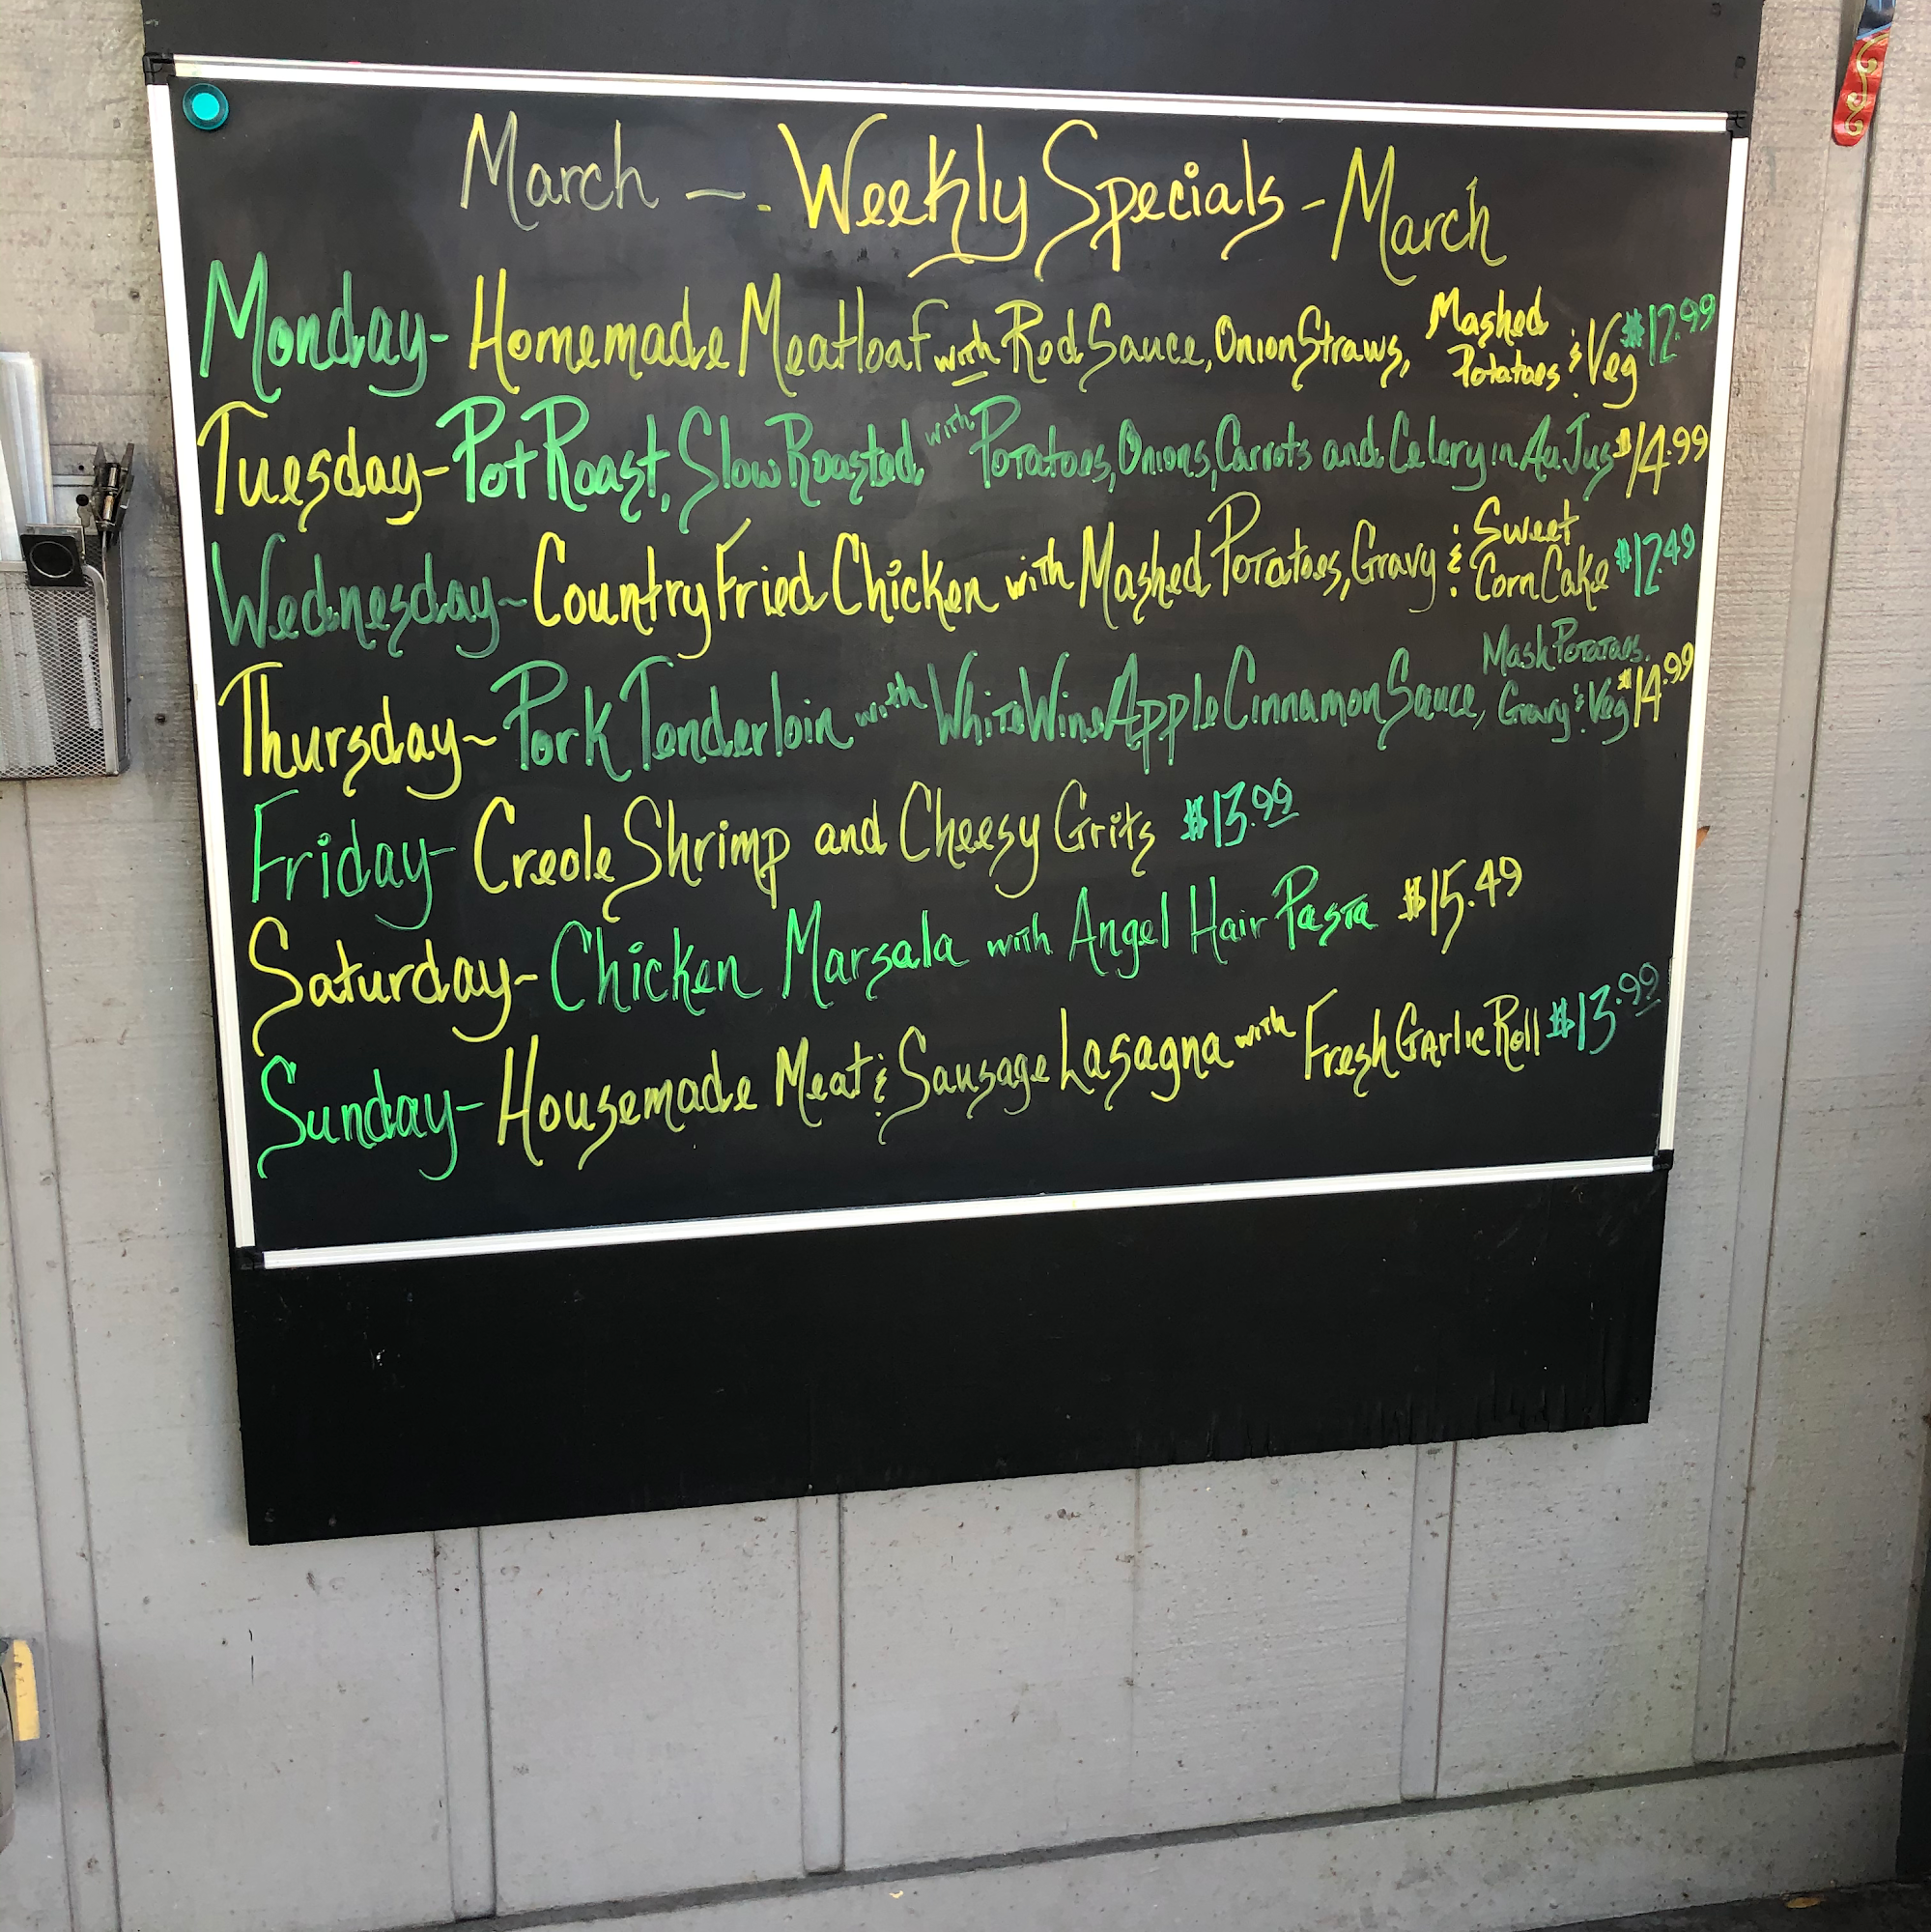 March - Weekly Specials - March
Monday- Homemade Meatloaf with Red Sauce, Onion Straws, Mashed Potatoes & Veg $12.99
Tuesday- Pot Roast, Slow Roasted with Potatoes, Onions, Carrots and Celery in Au Jus $14.99
Wednesday- Country Fried Chicken with Mashed Potatoes, Gravy & Sweet Corn Cake $12.49
Thursday- Pork Tenderloin with White Wine Apple Cinnamon Sauce, Mash Potatoes, Gravy & Veg $14.99
Friday- Creole Shrimp and Cheesy Grits $13.99
Saturday- Chicken Marsala with Angel Hair Pasta $15.49
Sunday- Housemade Meat & Sausage Lasagna with Fresh Garlic Roll $13.99